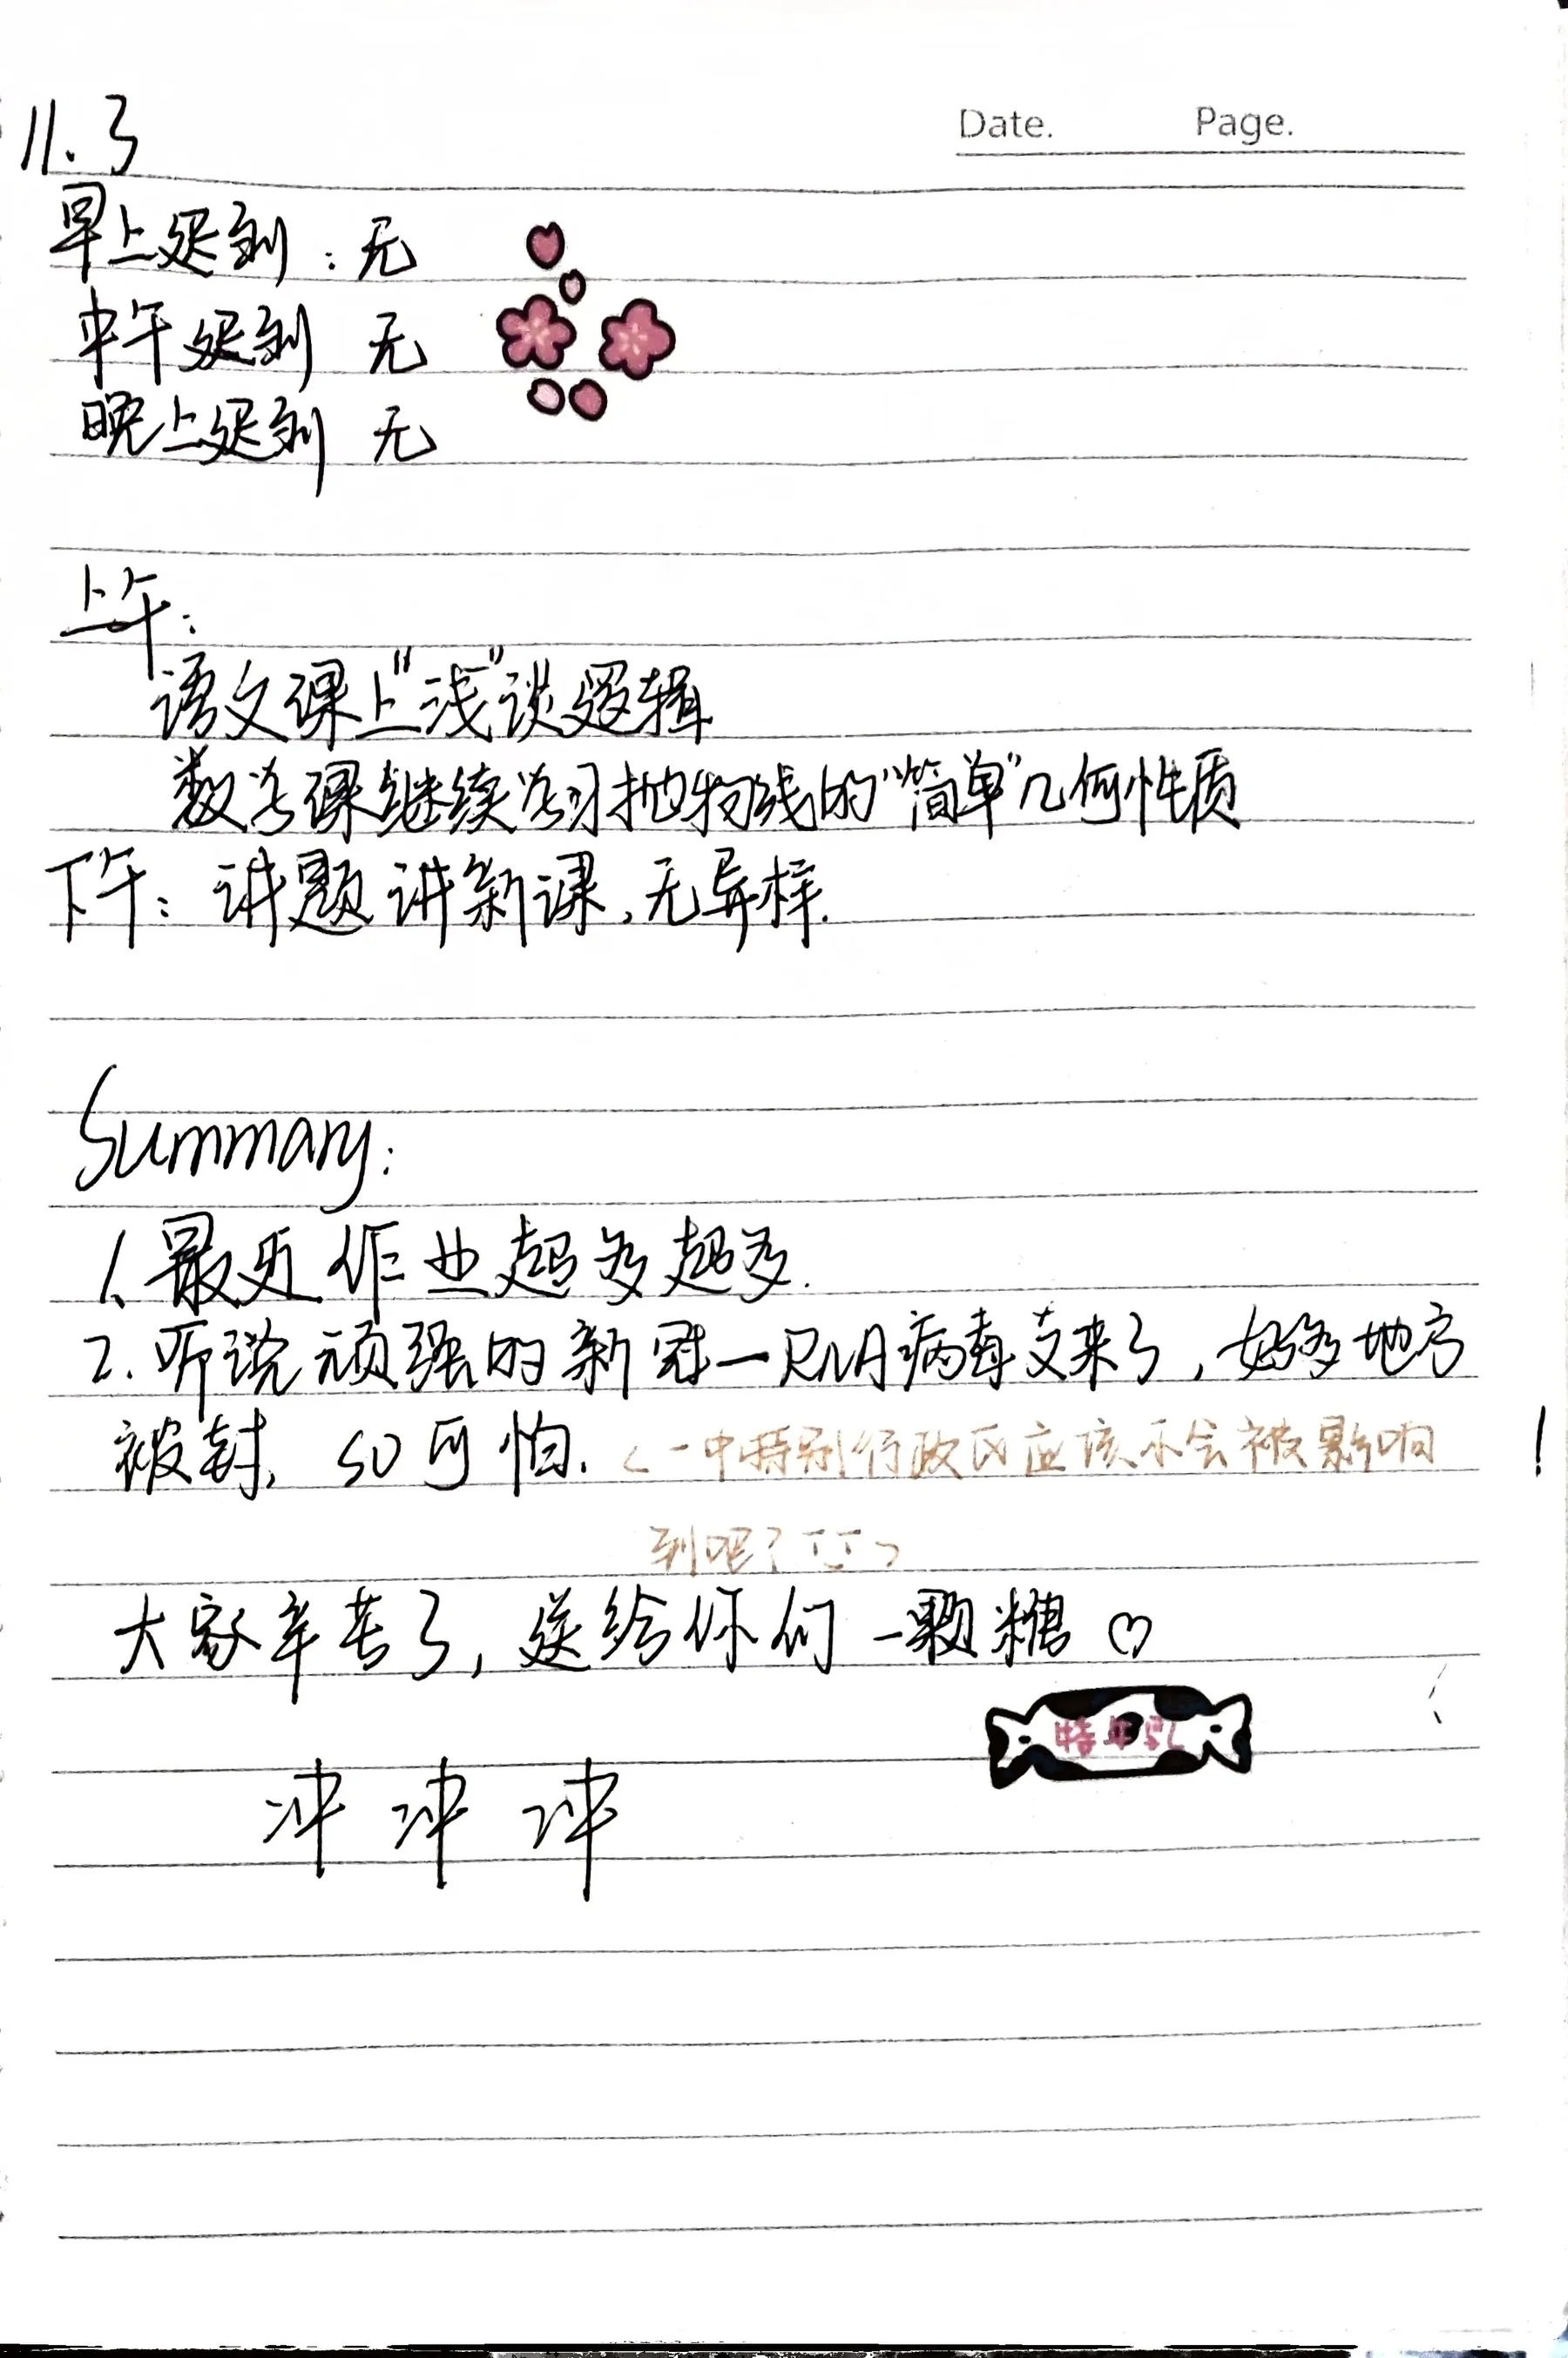 Date. Page.
11.3
早上迟到：无
中午迟到 无
晚上迟到 无
上午：
语文课上“浅”谈逻辑
数学课继续学习抛物线的“简单”几何性质
下午：讲题讲新课，无异样.
Summary:
1、最近作业超多超多.
2.听说顽强的新冠—RNA病毒又来了，好多地方
被封，so可怕.<一中特别行政区应该不会被影响
到吧？T_T>
大家辛苦了，送给你们一颗糖♡
特牛乳
冲冲冲